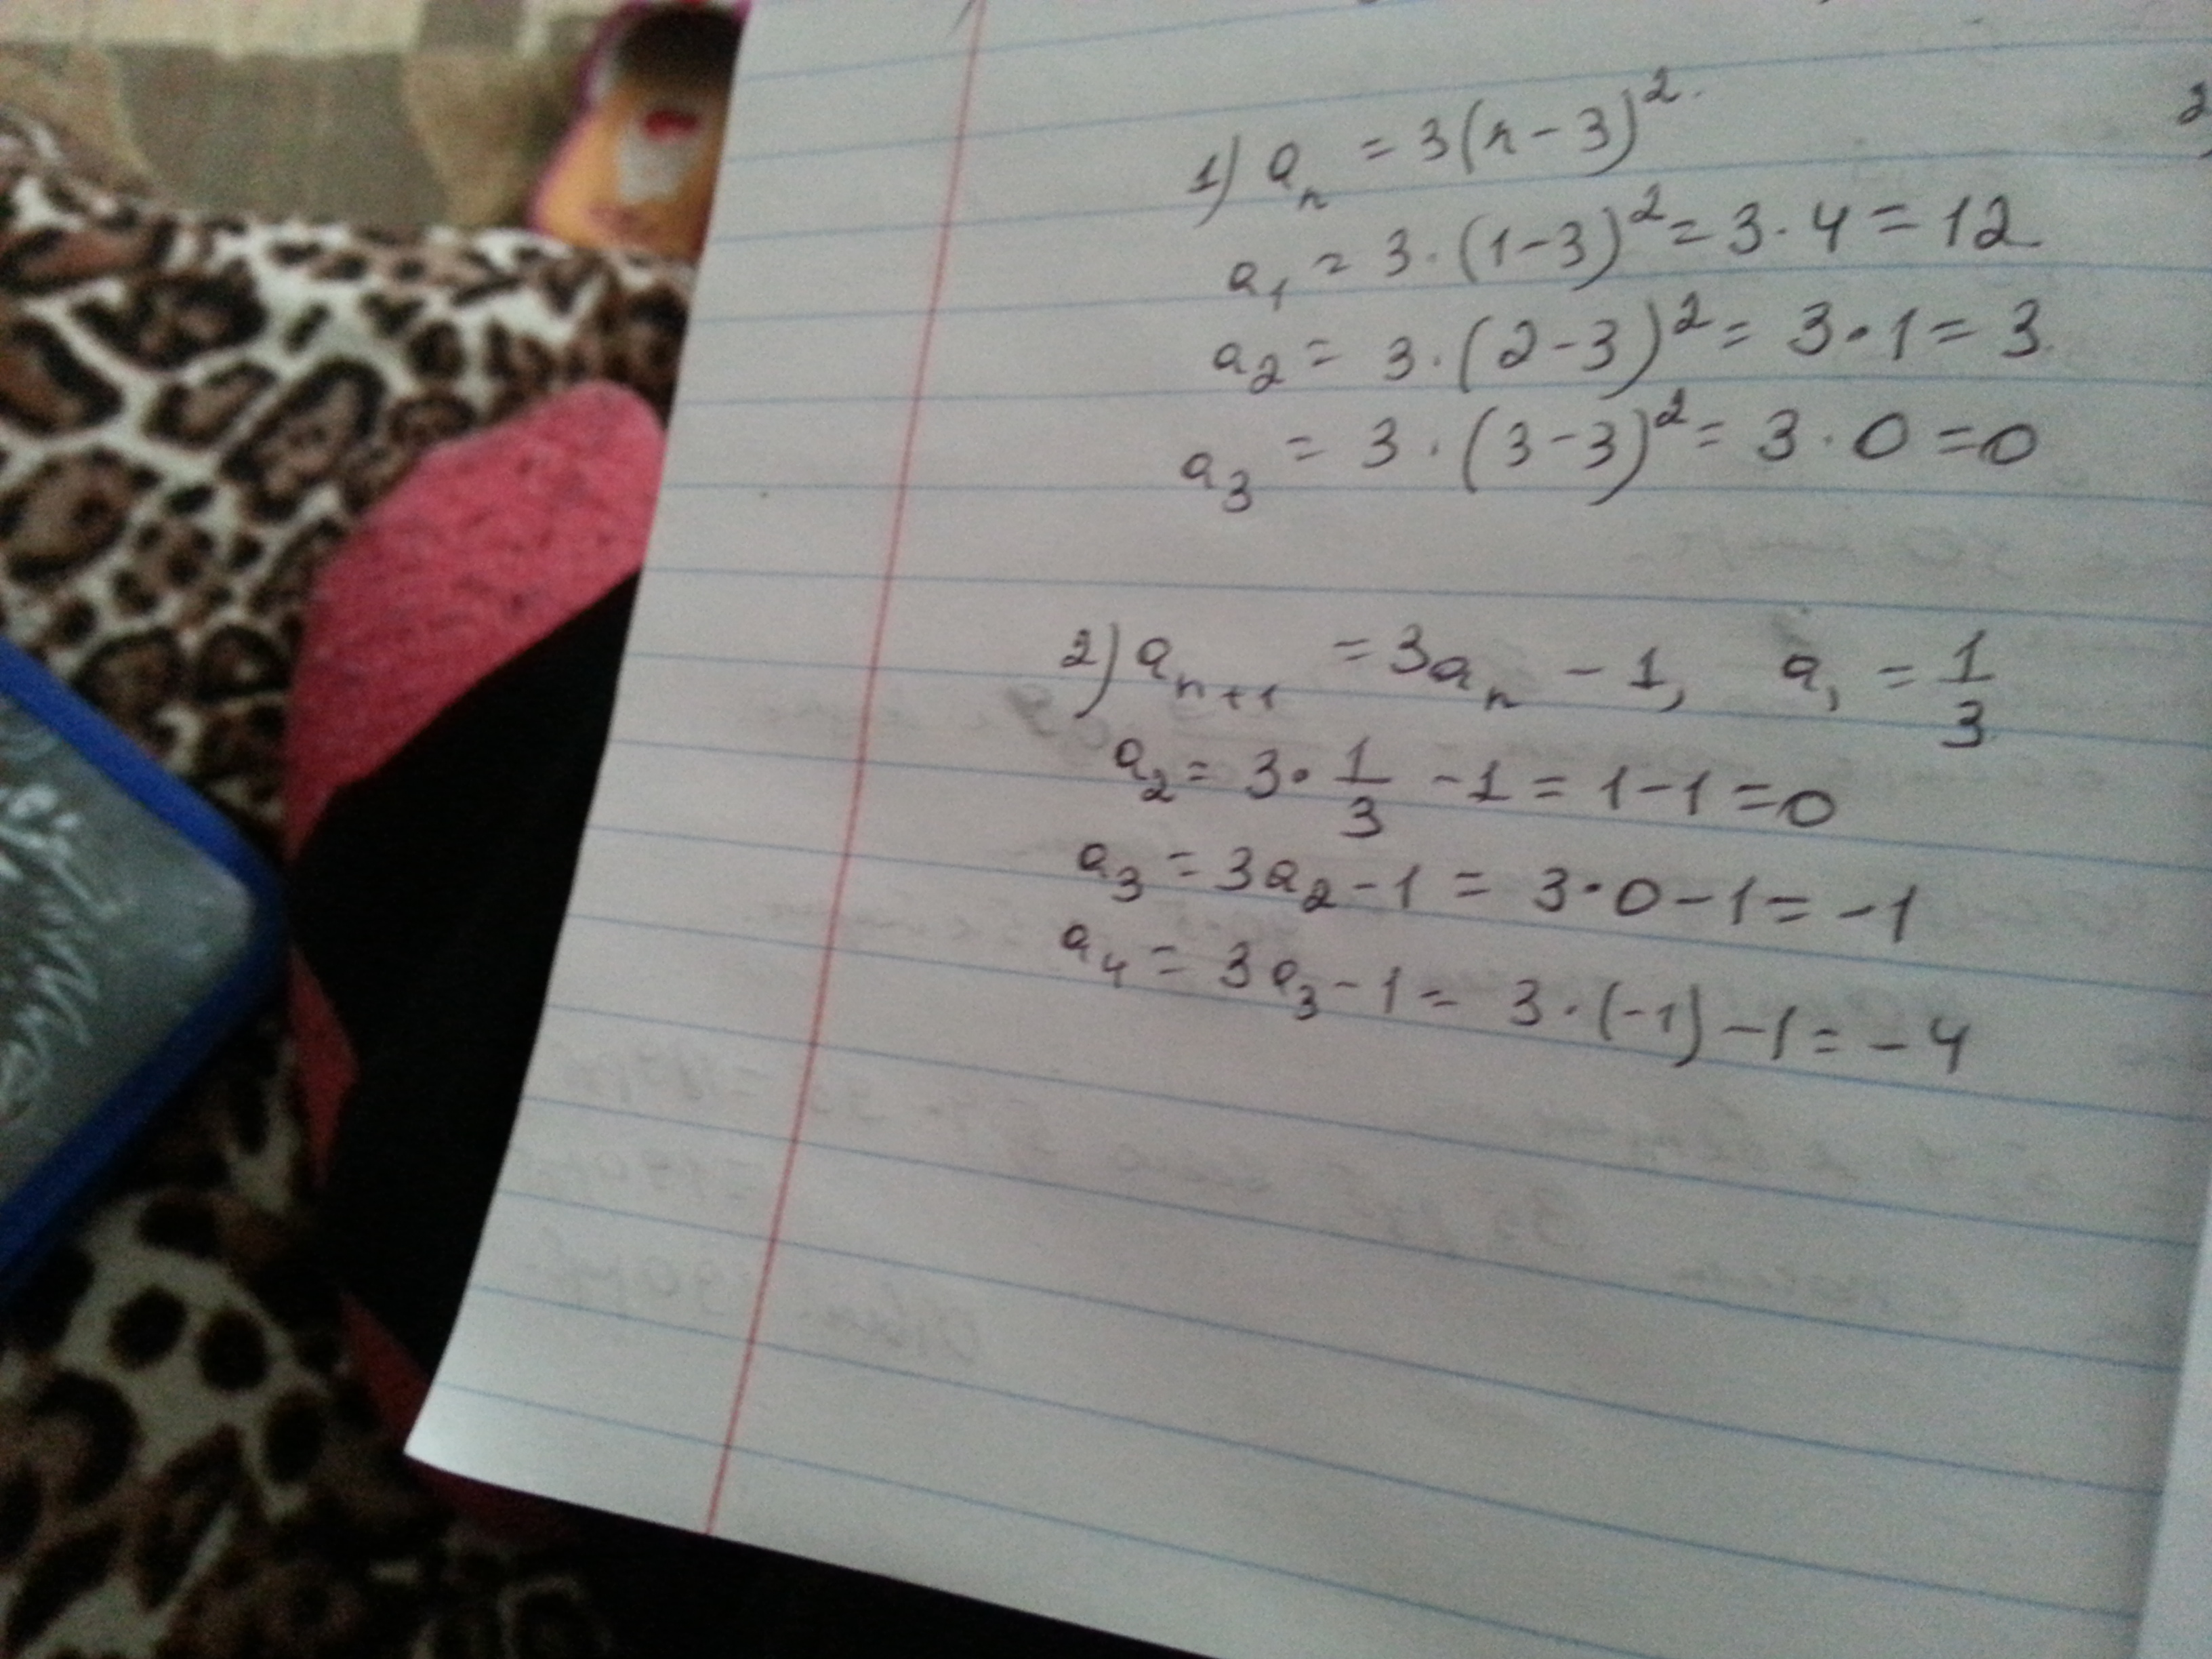 1) aₙ = 3(n-3)².
a₁ = 3·(1-3)² = 3·4 = 12
a₂ = 3·(2-3)² = 3·1 = 3
a₃ = 3·(3-3)² = 3·0 = 0
2) aₙ₊₁ = 3aₙ - 1, a₁ = 1/3
a₂ = 3·1/3 - 1 = 1-1 = 0
a₃ = 3a₂ - 1 = 3·0 - 1 = -1
a₄ = 3a₃ - 1 = 3·(-1) - 1 = -4